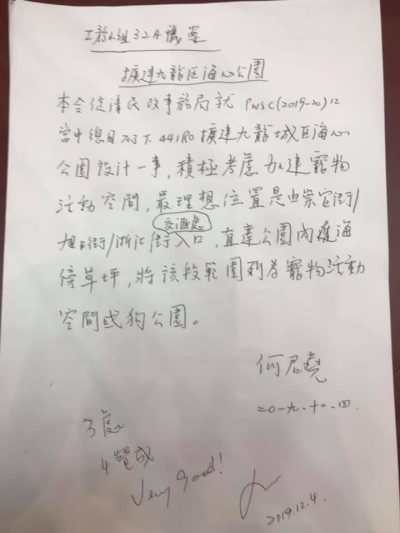 工務小組32A議案
擴建九龍區海心公園
本會促請民政事務局就 PWSC(2019-20)12
當中總目703下 441RO 擴建九龍城區海心
公園設計一事，積極考慮加建寵物
活動空間，最理想位置是由崇安街/
旭日街/浙江街交滙處入口，直達公園內
停草坪，將該段範圍列為寵物活動
空間或狗公園。
何君堯
二〇一九.十二.四
3反
4贊成
Very Good!
2019.12.4.